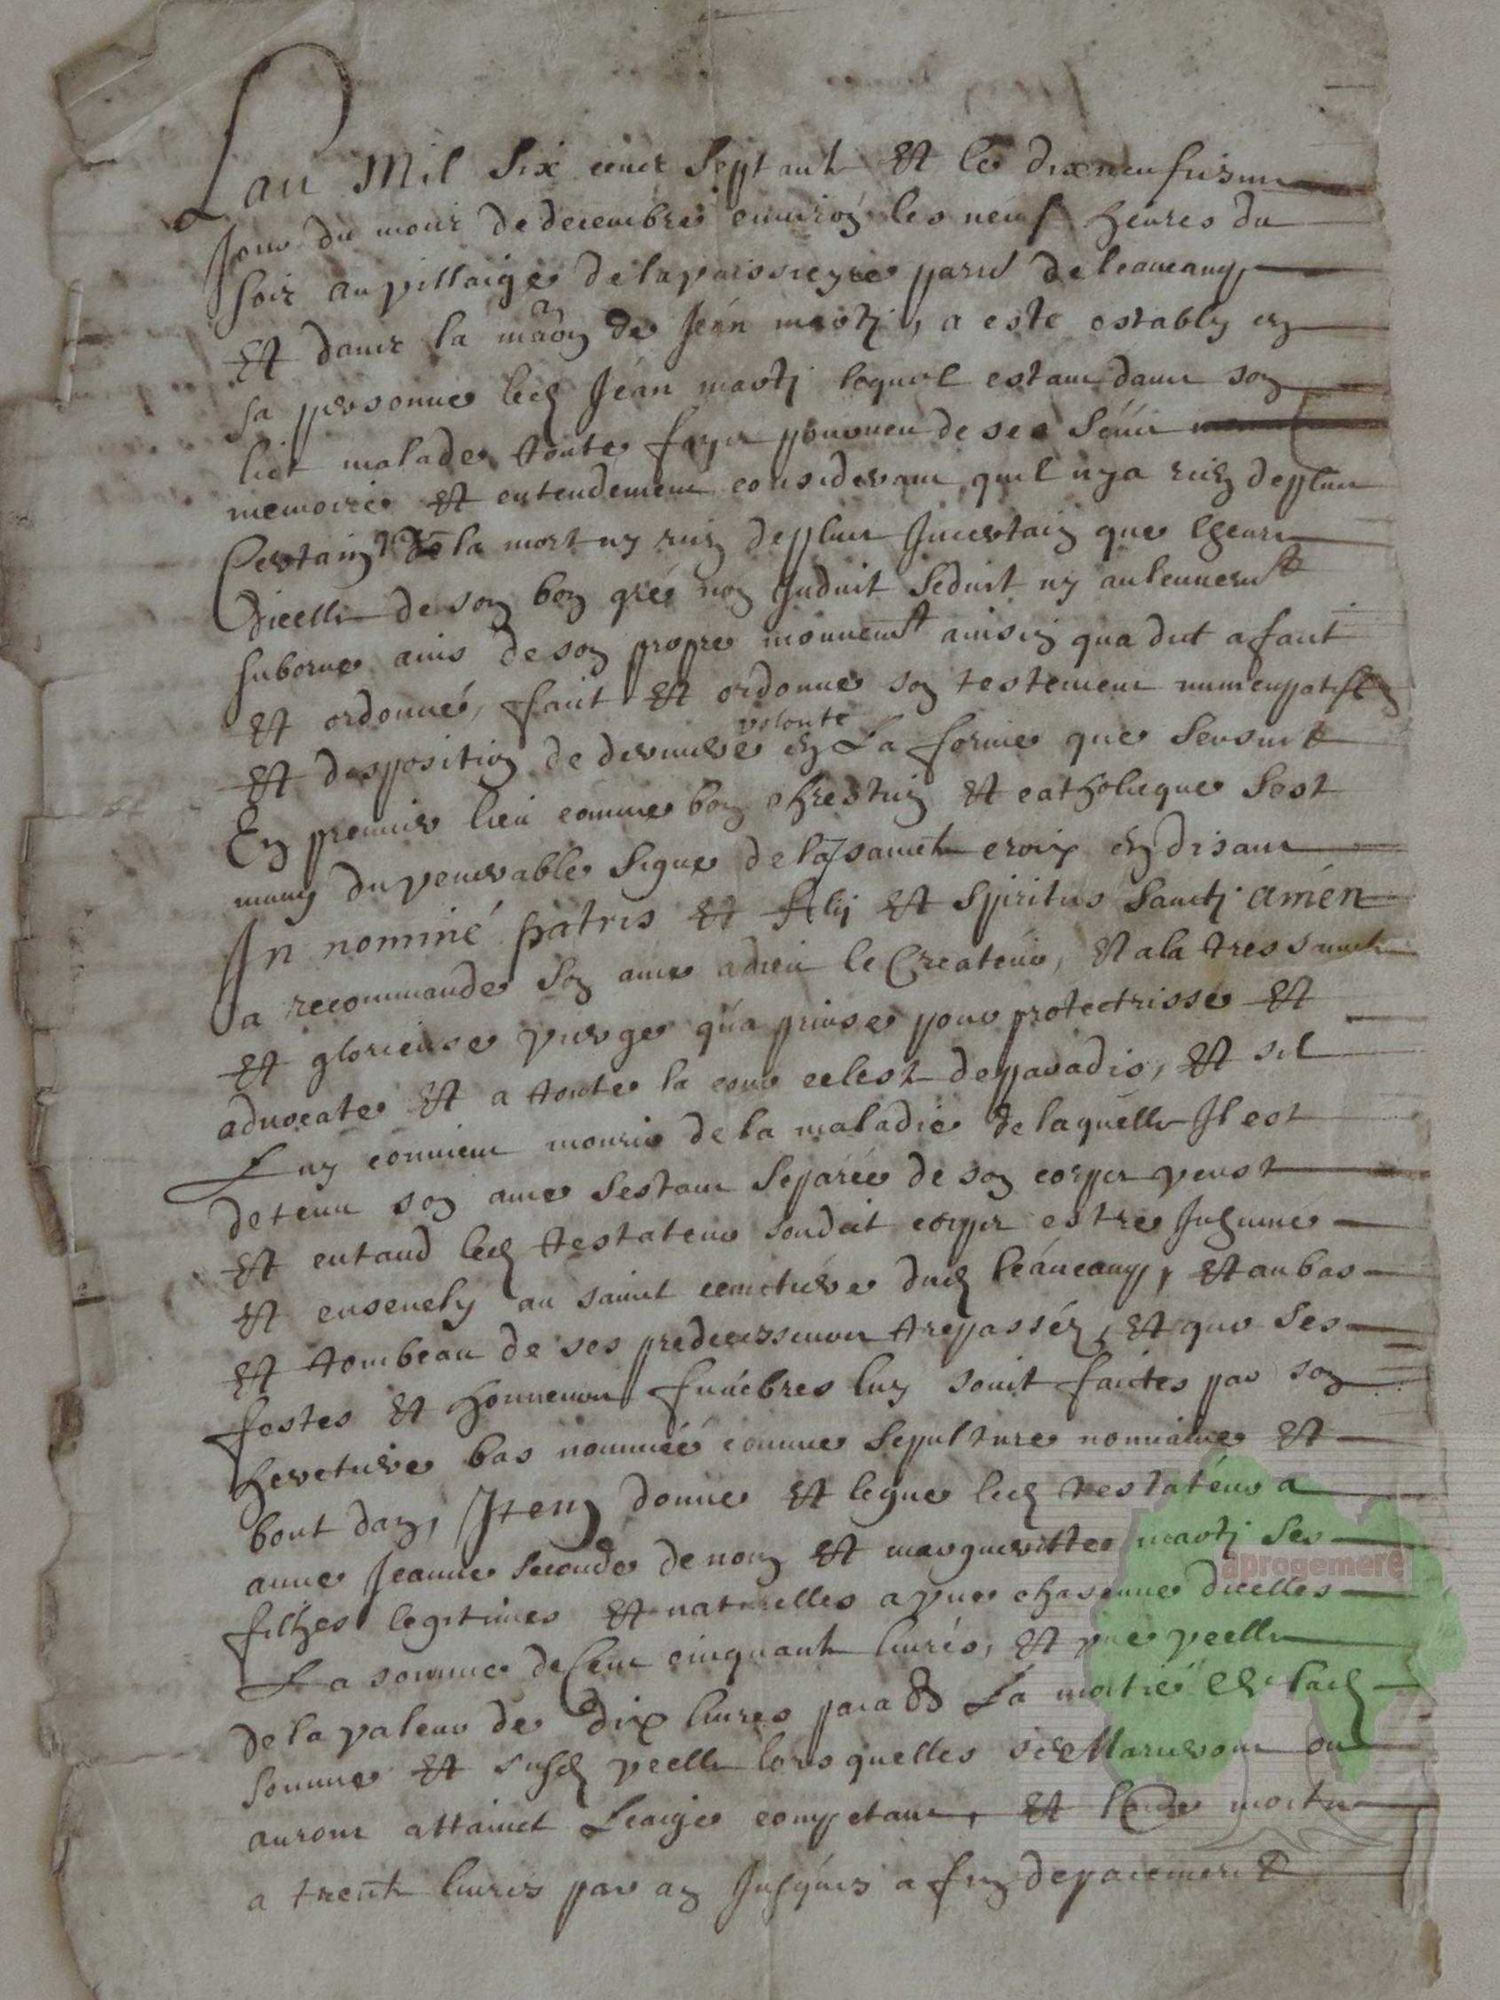 Lan Mil Six cens Septante Et le dixneufiesme
Jour du mois de decembre environ les neuf heures du
soir au villaige de la vaissieyre parr. de leaucamp
Et dans la maon de Jean marti, a esté estably en
sa personne led Jean marti lequel estant dans son
lict malade toute foys pourveu de ses sens
memoire Et entendement considerant quil ny a rien de plus
Certain que la mort ny rien de plus Incertain que lheure
dicelle de son bon gré non Induit Seduit ny aulcunemt
suborné ains de son propre mouvemt ainsin qua dict a faict
Et ordonné, faict Et ordonne son testement numcupatif
Et desposition de derniere volonté en La forme que sensuit
En premier lieu comme bon chrestien Et catholicque Sest
muny du venerable signe de la saincte croix En disant
In nominé patris Et filij Et Spiritus Sancti amén
a recommandé son ame a dieu le Createur, Et a la tres saincte
Et glorieuse vierge qu'a prinse pour protectrisse Et
advocate Et a toute la cour celeste de paradis, Et sil
Luy convient mourir de la maladie de laquelle Il est
detenu son ame sestant separée de son corps veust
Et entand led testateur sondit corps estre Inhumé
Et ensevely au saint cemetiere dud leáucamp, Et au bas
Et tombeau de ses predecesseurs trepassés, Et que ses
festes Et honneurs funebres luy soint faictes par son
heretiere bas nommée comme sepulture nouvaine Et
bout dan, Item donne Et legue led testateur a
anne Jeanne seconde de nom Et margueritte marti ses
filhes legitimes Et naturelles a une chascune dicelles
La somme de Cent cinquante livres, Et une veelle
de la valeur de dix livres paiab La moitié de lad
somme Et susd veelle lors quelles se Marieront ou
auront attainct Leaige competant, Et moitie
a trente livres par an Jusques a fin de paiement
aprogemere